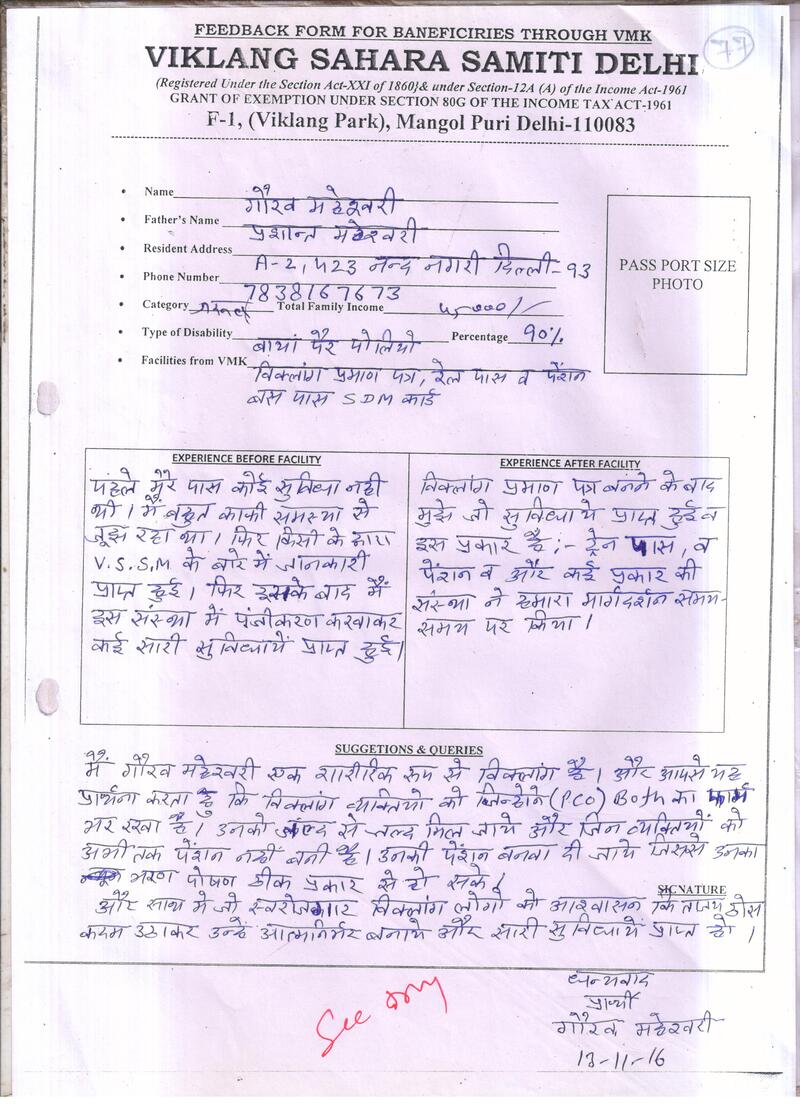 79
FEEDBACK FORM FOR BANEFICIRIES THROUGH VMK
VIKLANG SAHARA SAMITI DELHI
(Registered Under the Section Act-XXI of 1860}& under Section-12A (A) of the Income Act-1961
GRANT OF EXEMPTION UNDER SECTION 80G OF THE INCOME TAX ACT-1961
F-1, (Viklang Park), Mangol Puri Delhi-110083
• Name गौरव महेश्वरी
• Father's Name प्रशान्त महेश्वरी
• Resident Address A-2, 423 नन्द नगरी दिल्ली-93
• Phone Number 7838167673
• Category Total Family Income
• Type of Disability बायां पैर पोलियो Percentage 90%
• Facilities from VMK विकलांग प्रमाण पत्र, रेल पास व पेंशन
बस पास SDM कार्ड
PASS PORT SIZE
PHOTO
EXPERIENCE BEFORE FACILITY
पहले मेरे पास कोई सुविधा नही
थी। मैं बहुत काफी समस्या से
जूझ रहा था। फिर किसी के द्वारा
V.S.S.M के बारे में जानकारी
प्राप्त हुई। फिर इसके बाद मैं
इस संस्था में पंजीकरण करवाकर
कई सारी सुविधायें प्राप्त हुई।
EXPERIENCE AFTER FACILITY
विकलांग प्रमाण पत्र बनने के बाद
मुझे जो सुविधाये प्राप्त हुई व
इस प्रकार है ;- ट्रेन पास, व
पेंशन व और कई प्रकार की
संस्था ने हमारा मार्गदर्शन समय-
समय पर किया।
SUGGETIONS & QUERIES
मैं गौरव महेश्वरी एक शारीरिक रूप से विकलांग हैं। और आपसे यह
प्रार्थना करता हूँ कि विकलांग व्यक्तियो को जिन्होने (PCO) Both का फार्म
भर रखा है। उनको जल्द से जल्द मिल जाये और जिन व्यक्तियों को
अभी तक पेंशन नहीं बनी है। उनकी पेंशन बनवा दी जाये जिससे उनका
भरण पोषण ठीक प्रकार से हो सके।
SIGNATURE
और साथ मे जो स्वरोजगार विकलांग लोगो को आश्वासन ठोस
कदम उठाकर उन्हें आत्मनिर्भर बनाये और सारी सुविधायें प्राप्त हो।
धन्यवाद
प्रार्थी
गौरव महेश्वरी
13-11-16
See